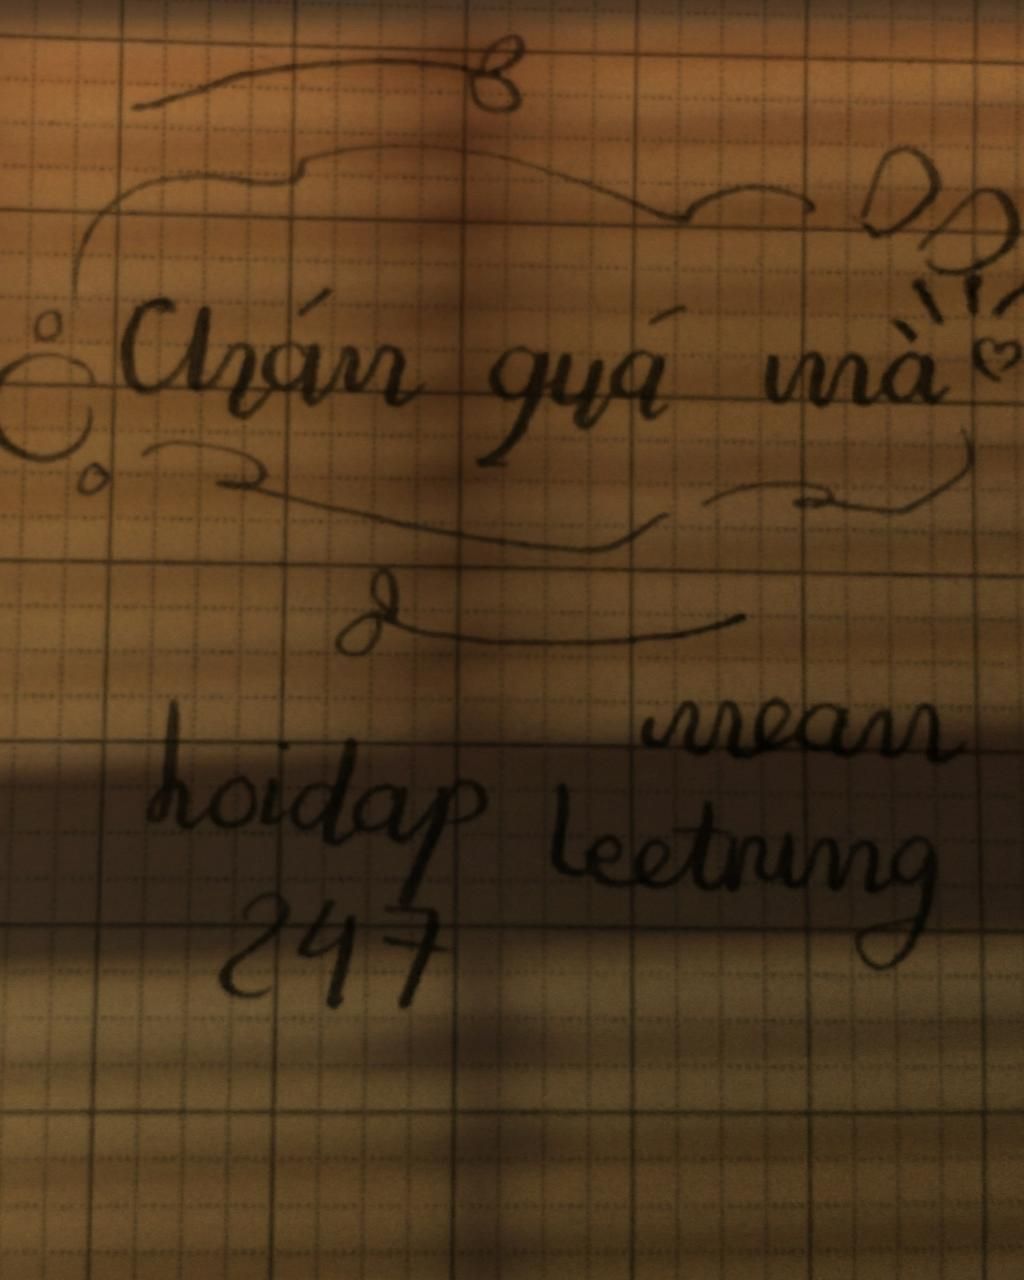 Chán quá mà
mean
hoidap leetrung
247